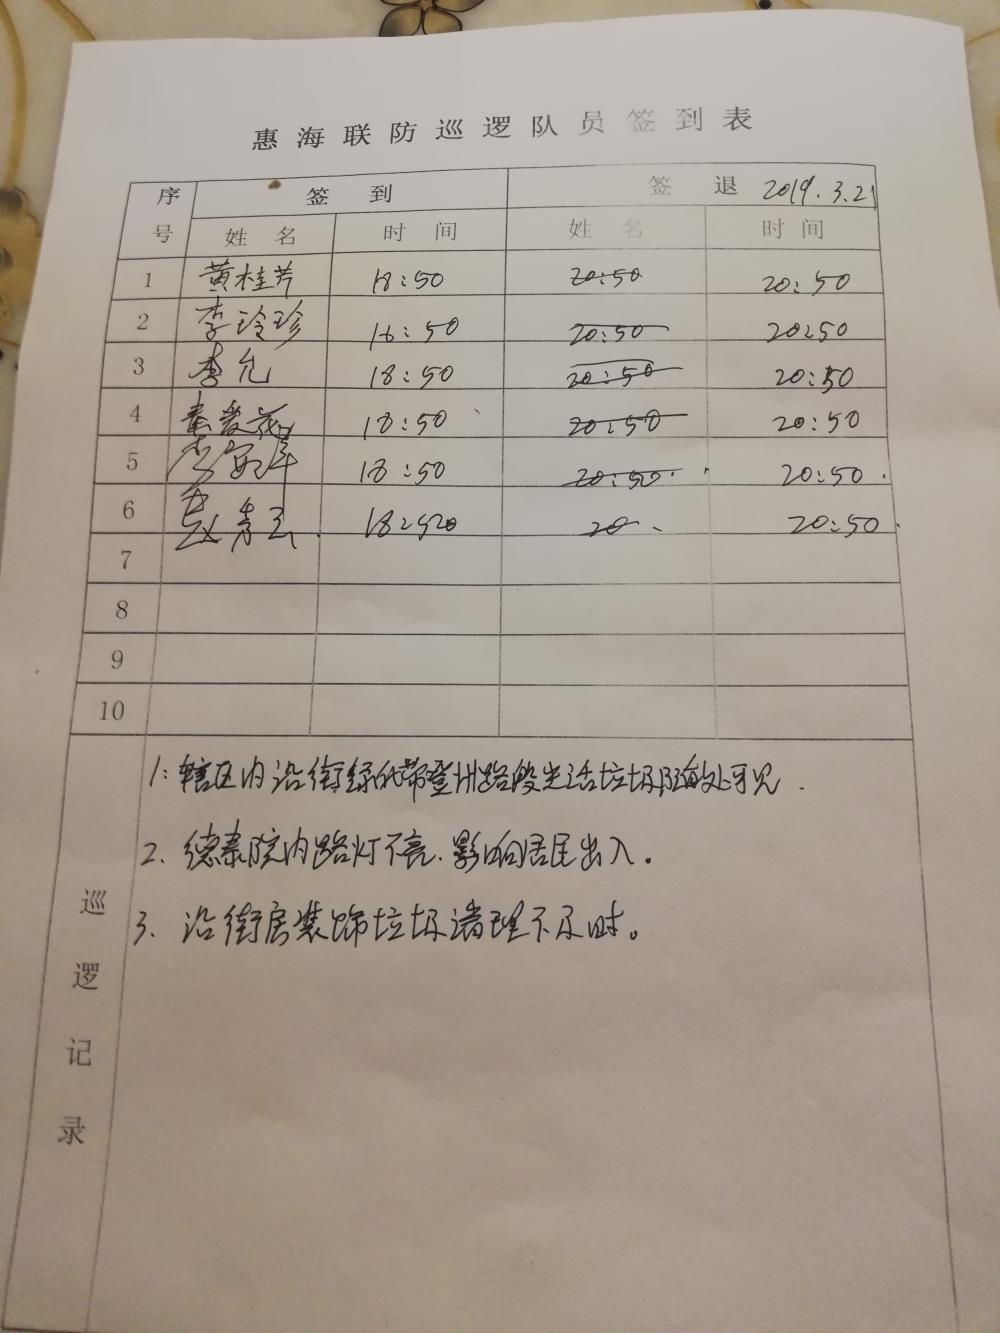 惠海联防巡逻队员签到表
序号 签到 签退 2019.3.21
姓名 时间 姓名 时间
1 黄桂芹 18:50 20:50 20:50
2 李玲珍 18:50 20:50 20:50
3 李允 18:50 20:50 20:50
4 秦爱花 18:50 20:50 20:50
5 18:50 20:50. 20:50.
6 18:50 20 20:50.
7
8
9
10
巡逻记录
1:辖区内沿街绿化带登州路段生活垃圾随处可见.
2.德泰院内路灯不亮.影响居民出入。
3.沿街房装饰垃圾清理不及时。